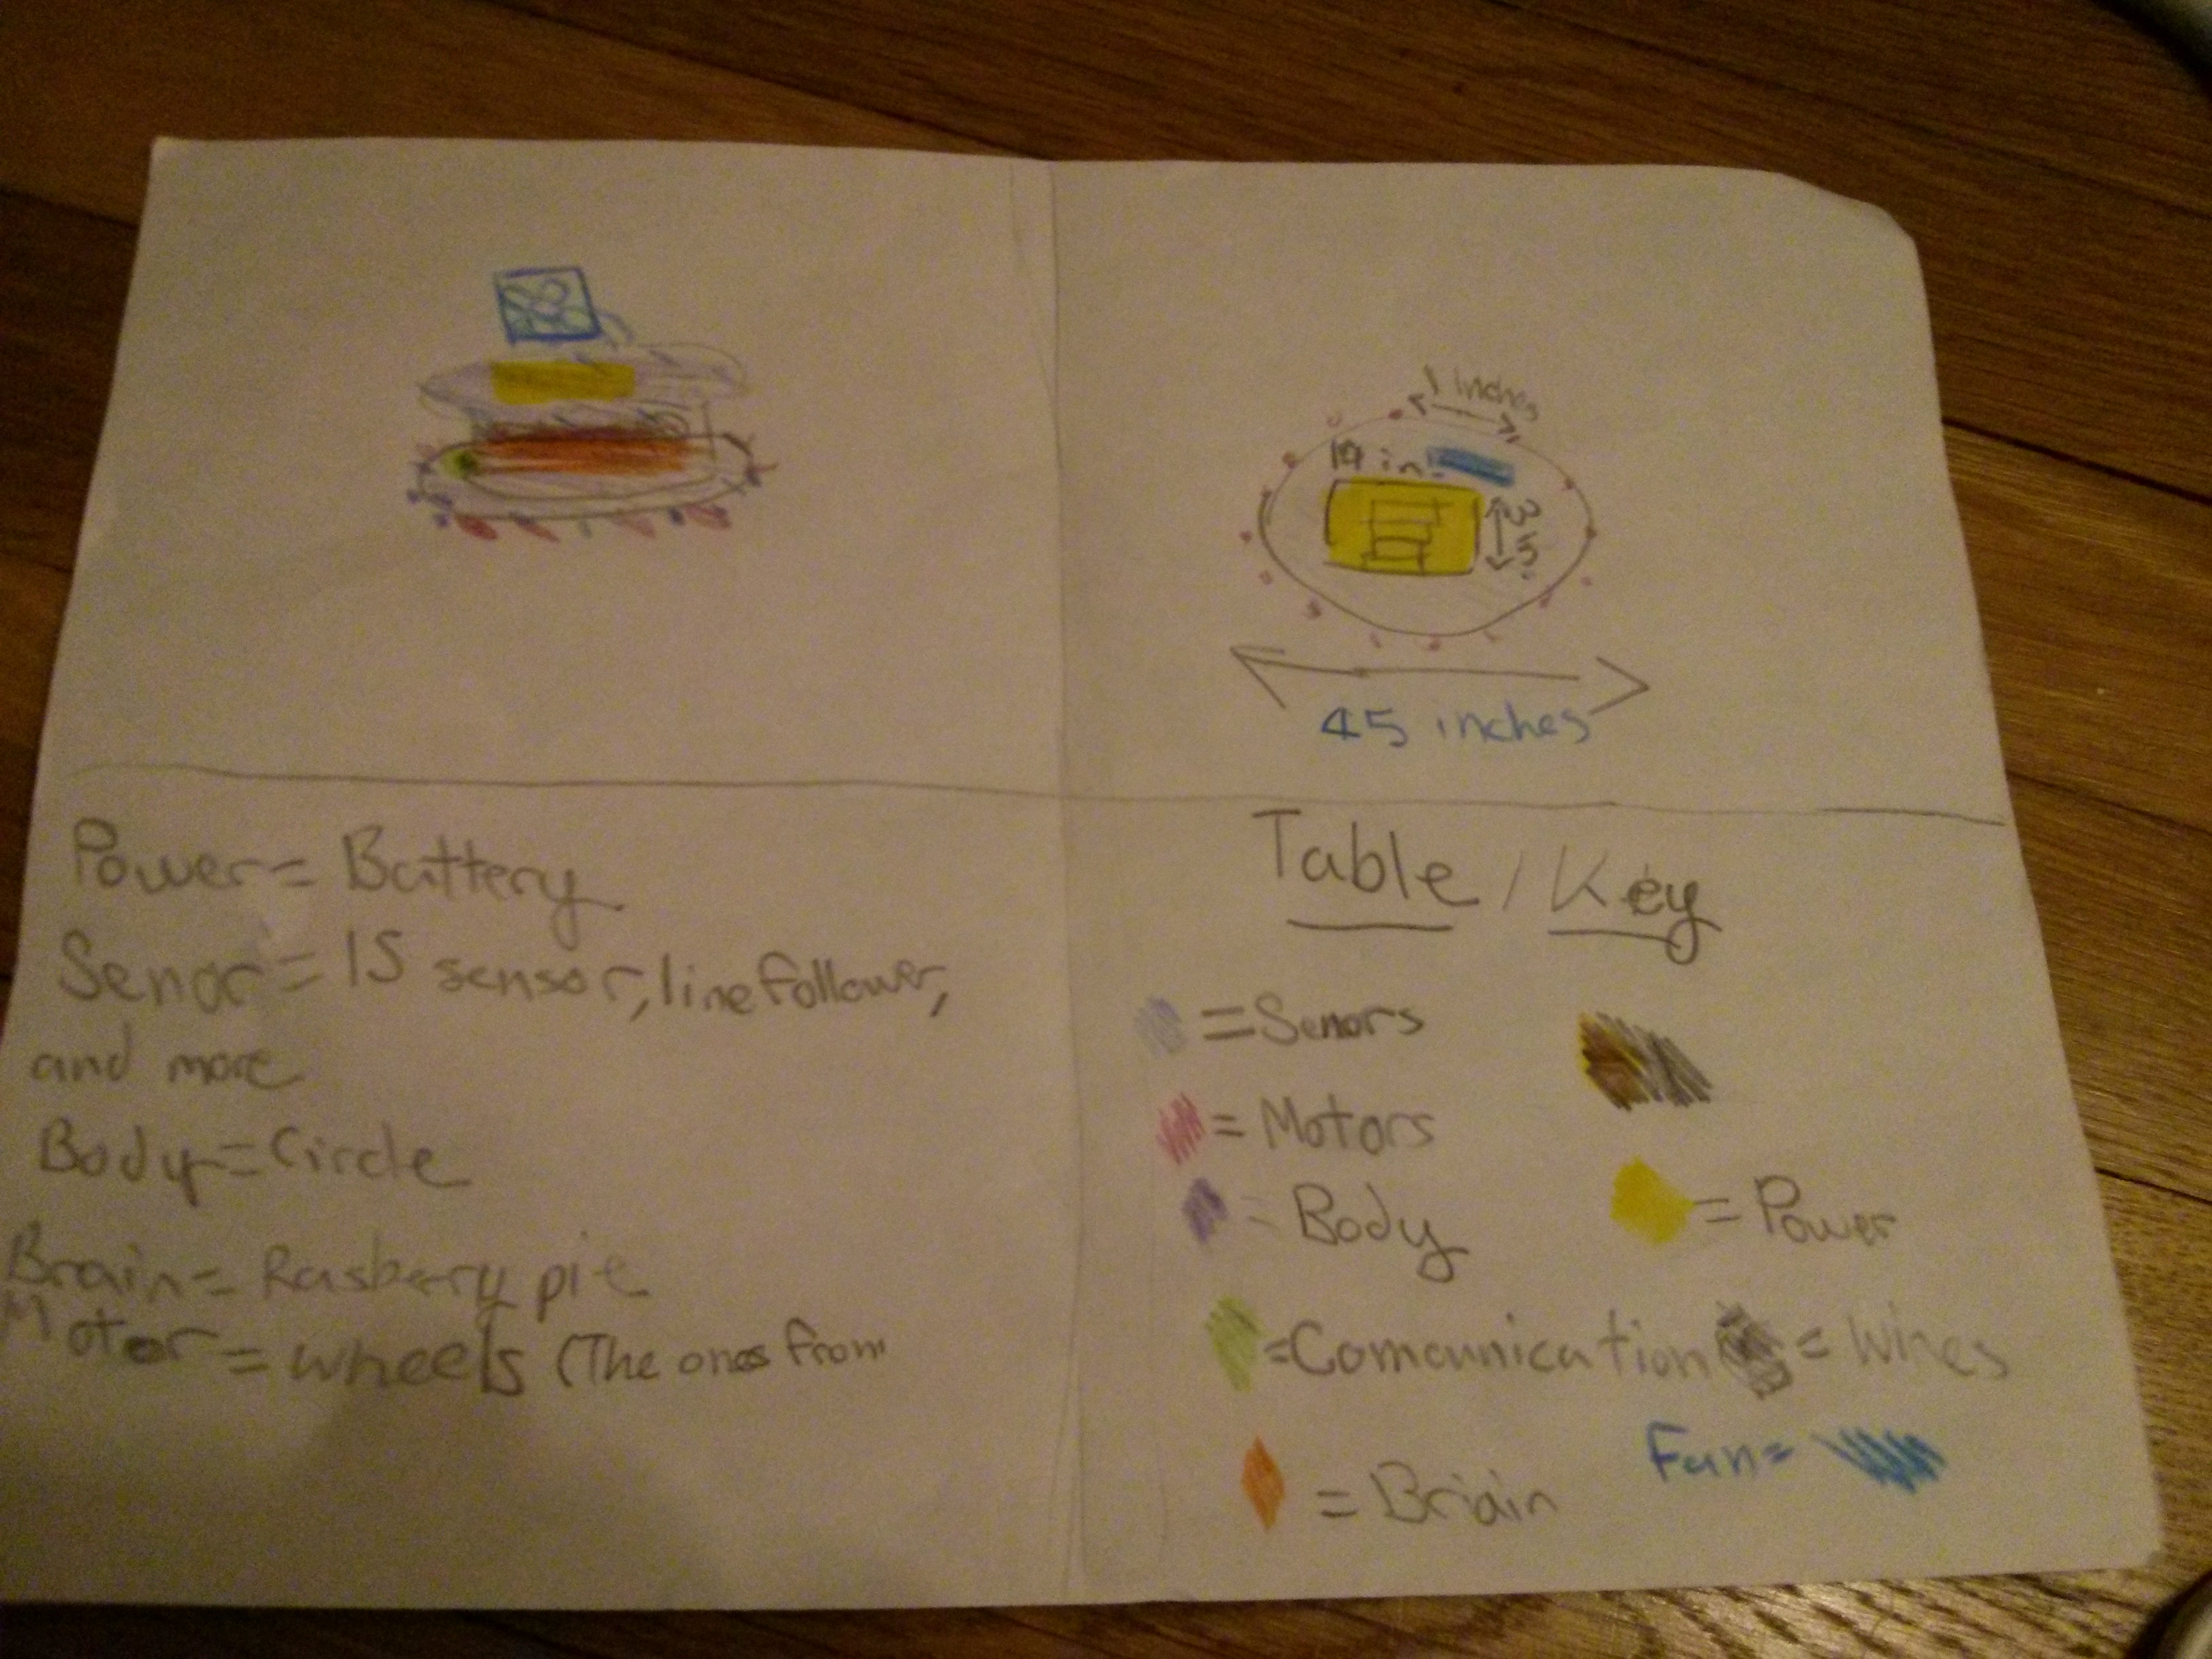 1 inches
in.
3 in.
45 inches
Power = Battery
Senor = IS sensor, line follower,
and more
Body = Circle
Brain = Rasberry pie
Motor = wheels (The ones from
Table / Key
= Senors
= Motors
= Body
= Power
= Comounication
= Wires
= Briain
Fan =